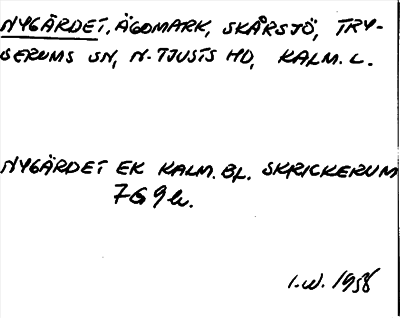 NYGÄRDET, ÄGOMARK, SKÅRSJÖ, TRY-
SERUMS SN, N. TJUSTS HD, KALM. L.
NYGÄRDET EK KALM. BL. SKRICKERUM
7G9h.
I.W. 1958